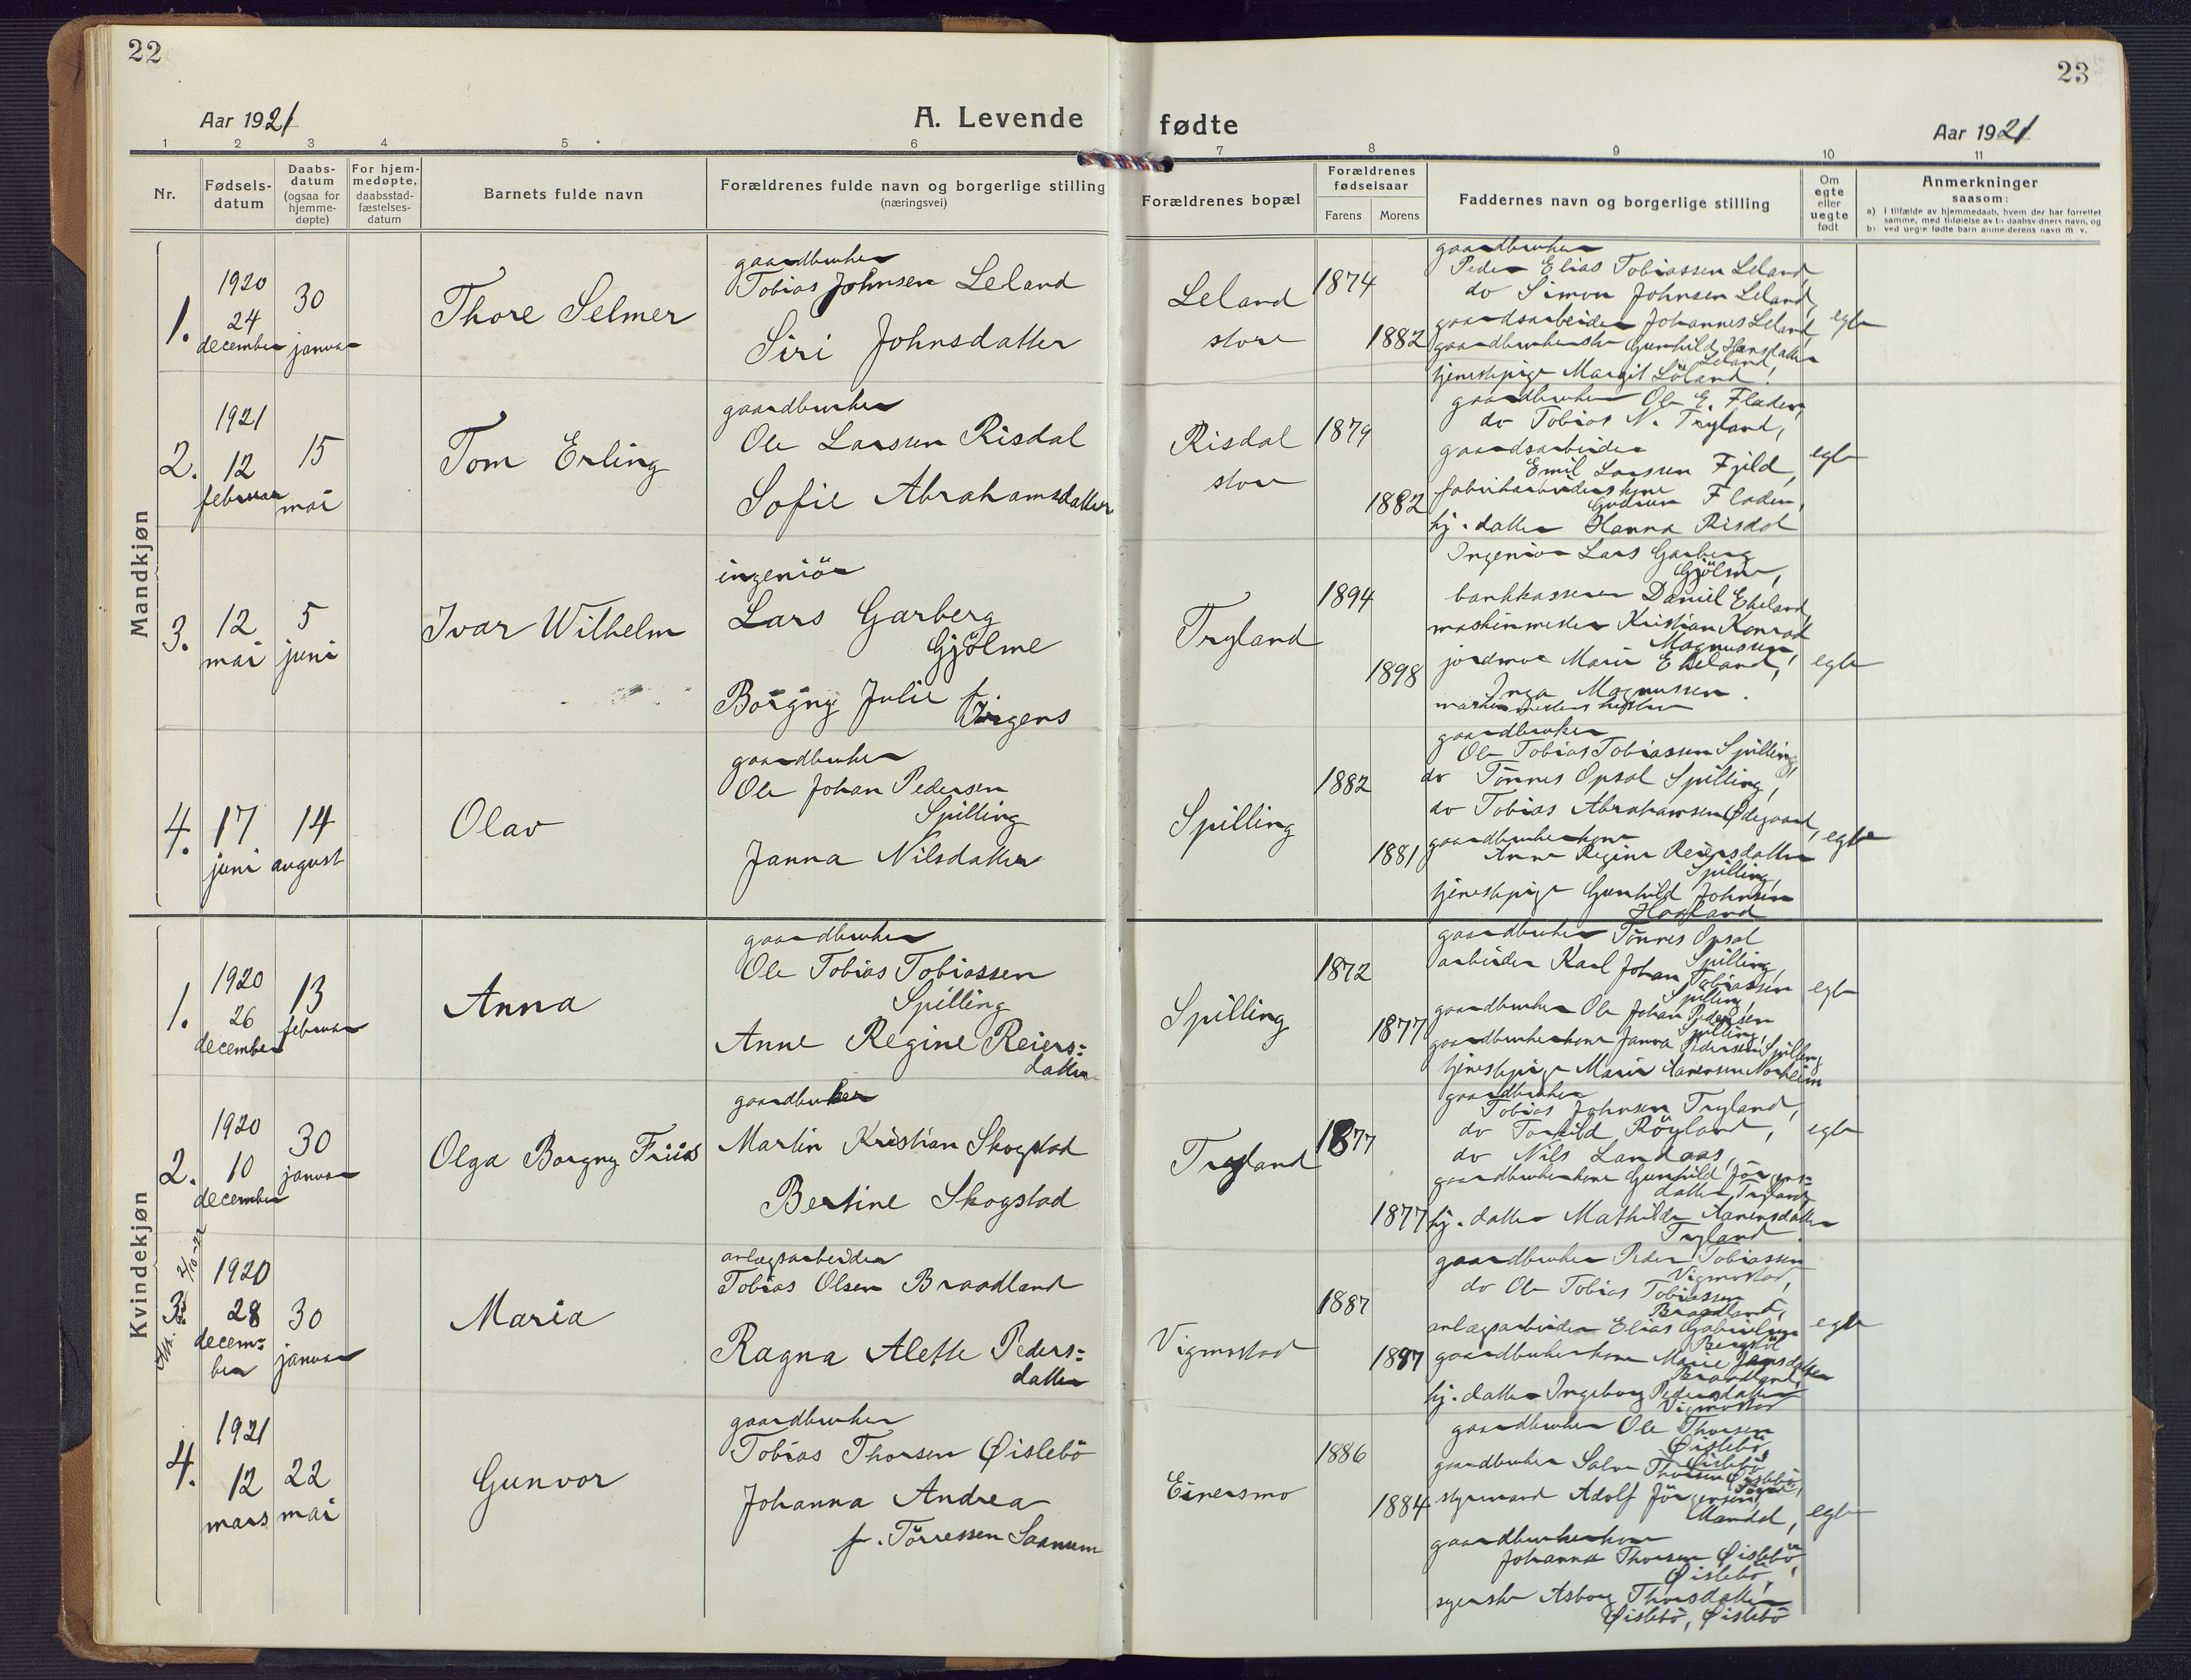 22
23
Aar 1921
A. Levende fødte
Aar 1921
1 2 3 4 5 6 7 8 9 10 11
Nr.
Fødsels-
datum
Daabs-
datum
(ogsaa for
hjemme-
døpte)
For hjem-
medøpte,
daabsstad-
fæstelses-
datum
Barnets fulde navn
Forældrenes fulde navn og borgerlige stilling
(næringsvei)
Forældrenes bopæl
Forældrenes
fødselsaar
Farens
Morens
Faddernes navn og borgerlige stilling
Om
egte
eller
uegte
født
Anmerkninger
saasom:
a) I tilfælde av hjemmedaab, hvem der har forrettet
samme, med tilføielse av to daabsvidners navn, og
b) ved uegte fødte barn anmelderens navn m. v.
Mandkjøn
1.
1920
24
december
30
januar
Thore Selmer
gaardbruker
Tobias Johnsen Leland
Siri Johnsdatter
Leland
store
1874
1882
gaardbruker
Peder Elias Tobiassen Leland,
do Simon Johnsen Leland,
gaardsarbeider Johannes Leland,
gaardbrukerske Gunhild Hansdatter
Leland,
tjenestepige Margit Löland.
egte
2.
1921
12
februar
15
mai
Tom Erling
gaardbruker
Ole Larssen Risdal
Sofie Abrahamsdatter
Risdal
store
1879
1882
gaardbruker Ole E. Fladen,
do Tobias N. Tryland,
gaardsarbeider
Emil Larssen Fjild,
fabrikarbeiderskone
Gudrun Fladen,
hj. datter Hanna Risdal
egte
3.
12
mai
5
juni
Ivar Wilhelm
ingeniör
Lars Garberg
Gjölme
Borgny Julie f. Jürgens
Tryland
1894
1898
Ingeniör Lars Garberg
Gjölme,
bankkasserer Daniel Ekeland,
maskinmester Kristian Konrad
Magnussen,
jordmor Marie Ekeland,
Inga Magnussen.
maskinmesters hustru
egte
4.
17
juni
14
august
Olav
gaardbruker
Ole Johan Pedersen
Spilling
Janna Nilsdatter
Spilling
1882
1881
gaardbruker
Ole Tobias Tobiassen Spilling,
do Tönnes Opsal Spilling,
do Tobias Abrahamsen Ødegaard,
gaardbrukerkone
Anne Regine Reiersdatter
Spilling,
tjenestepige Gunhild Johnsen
Hogland
egte
Kvindekjøn
1.
1920
26
december
13
februar
Anna
gaardbruker
Ole Tobias Tobiassen
Spilling
Anne Regine Reiers=
datter
Spilling
1872
1877
gaardbruker Tönnes Opsal
Spilling,
arbeider Karl Johan Tobiassen
Spilling,
gaardbruker Ole Johan Pedersen
Spilling,
gaardbrukerkone Janna Pedersen Spilling
tjenestepige Marie Aanensen Norheim
egte
2.
1920
10
december
30
januar
Olga Borgny Friis
gaardbruker
Martin Kristian Skogstad
Bertine Skogstad
Tryland
1877
1877
gaardbruker
Tobias Johnsen Tryland,
do Torkild Röyland,
do Nils Landaas,
gaardbrukerkone Gunhild Jörgens=
datter Tryland,
hj. datter Mathilde Aanensdatter
Tryland
egte
3.
1920
28
decem=
ber
30
januar
Maria
anlægsarbeider
Tobias Olsen Braadland
Ragna Alette Peders=
datter
Vigmostad
1887
1897
gaardbruker Peder Tobiassen
Vigmostad,
do Ole Tobias Tobiassen
Braadland,
anlægsarbeider Elias Gabrielsen
gaardbrukerkone Marie Jensdatter
Braadland,
hj. datter Ingeborg Pedersdatter
Vigmostad
egte
4.
1921
12
mars
22
mai
Gunvor
gaardbruker
Tobias Thorsen Øislebö
Johanna Andrea
f. Törressen Saanum
Einersmo
1886
1884
gaardbruker Ole Thorsen
Øislebö,
gaardbruker Salve Thorsen Øislebö,
Øislebö
styrmand Adolf Jörgensen,
Mandal,
gaardbrukerkone
Johanna Thorsen Øislebö
Øislebö,
syerske Asborg Thorsdatter
Øislebö, Øislebö
egte